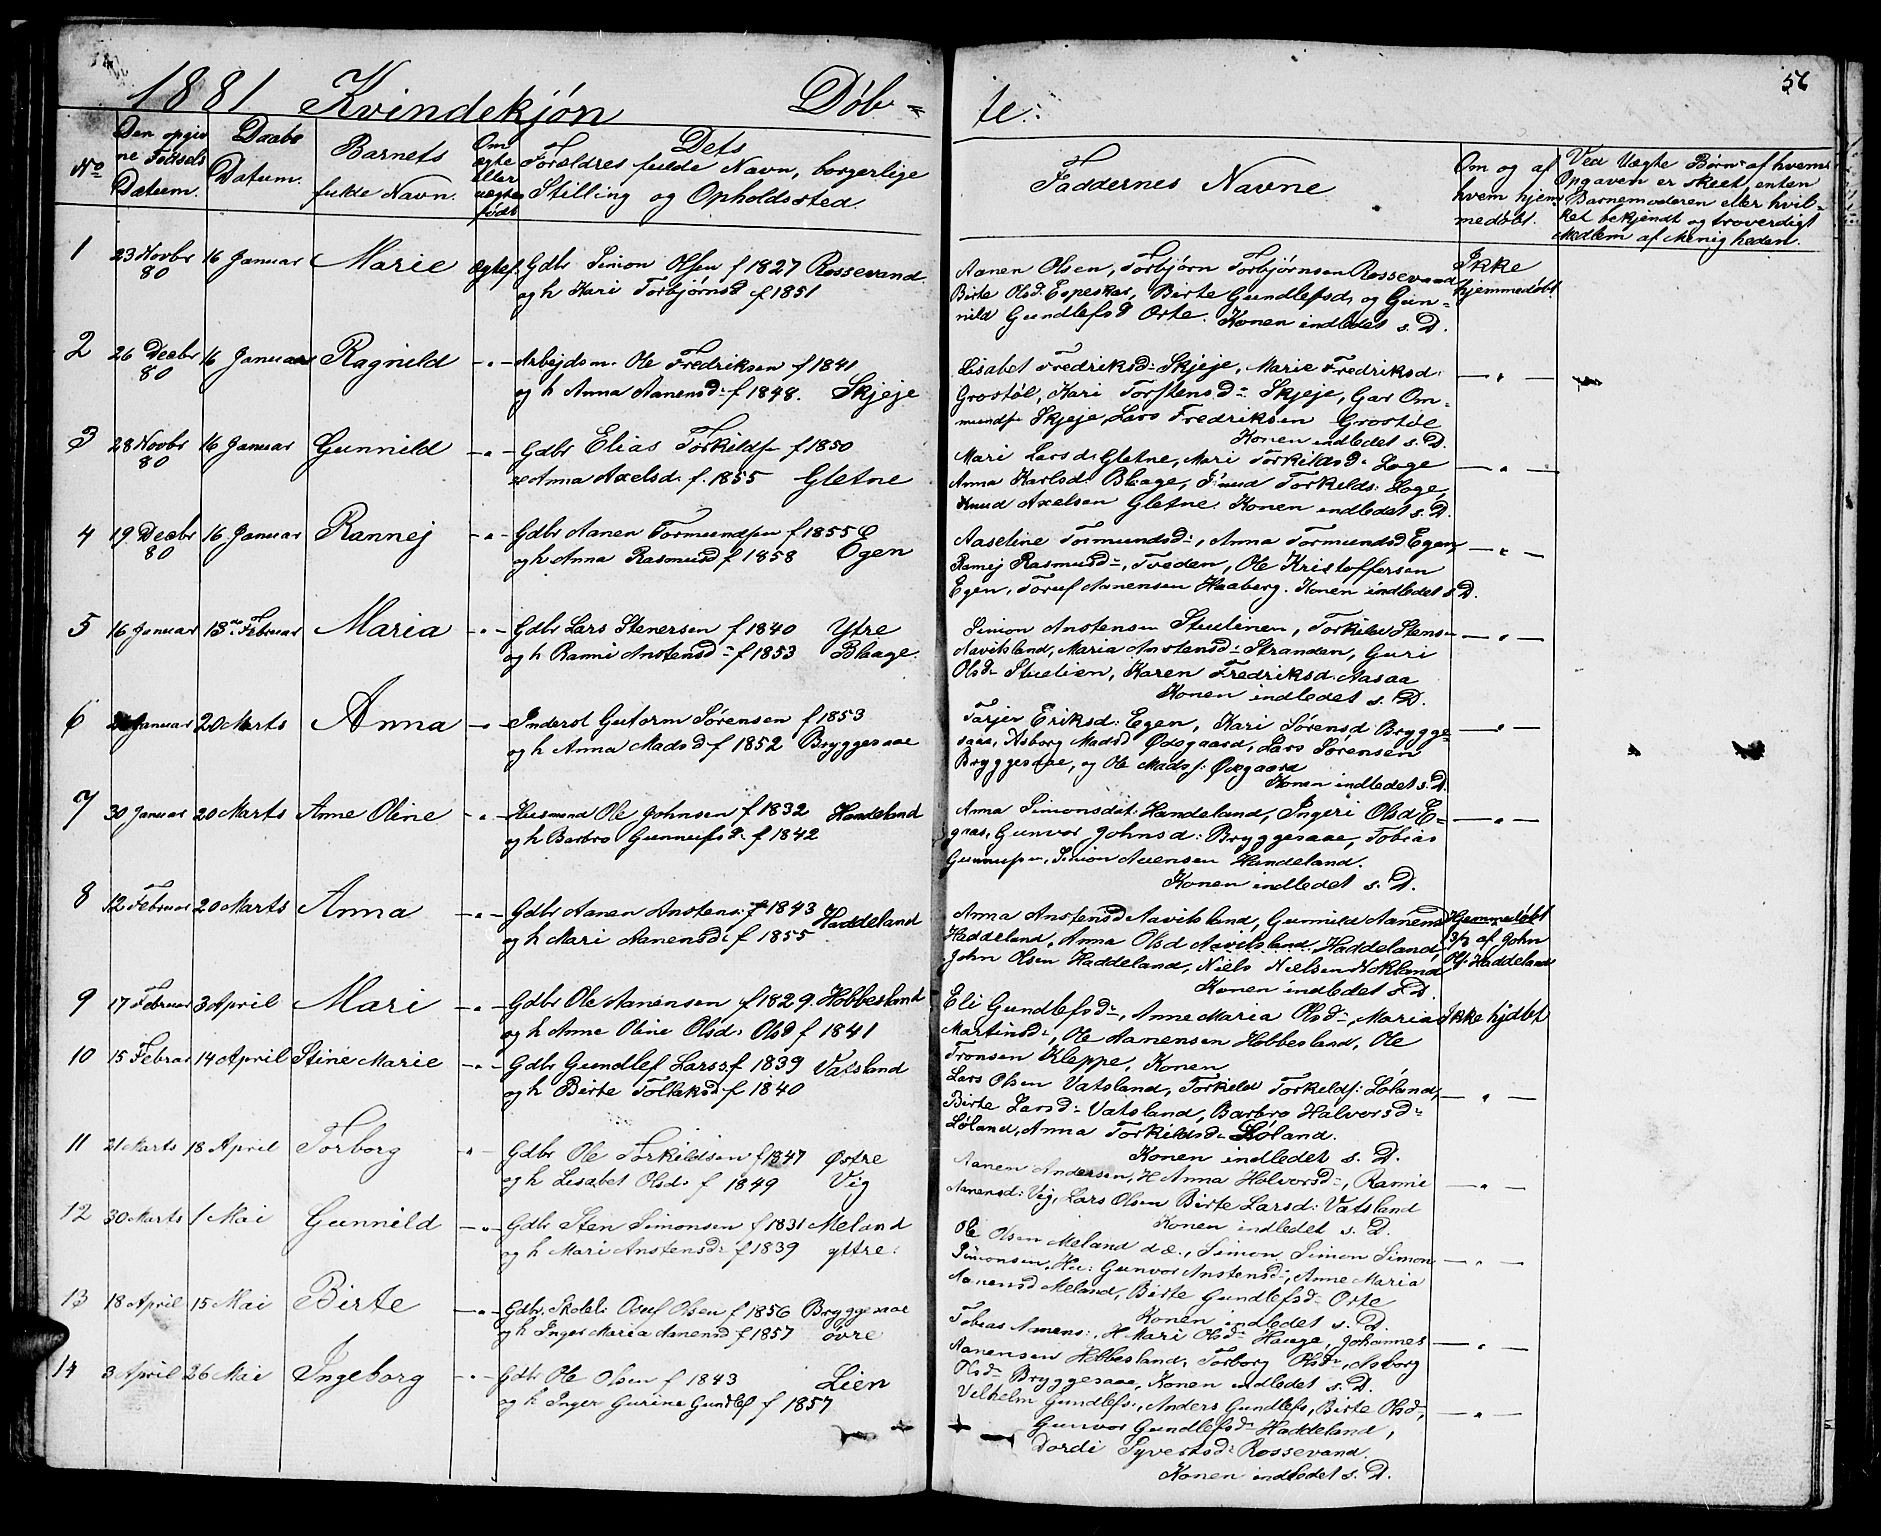 56
1881 Kvindekjøn Døb-
te:
No
Den opgiv
ne Fødsels
Datum.
Daabs
Datum.
Barnets
fulde Navn.
Om
ægte
eller
uægte
født
Dets
Forældres fulde Navn, borgerlige
Stilling og Opholdssted
Faddernes Navne
Om og af
hvem hjem
medøbt.
Ved Uægte Børn: af hvem
Opgaven er skeet, enten
Barnemoderen eller hvil-
ket bekjendt og troverdigt
Medlem af Menigheden.
1 23 Novbr 80 16 Januar Marie Ægtef. Gdbr Simon Olsen f 1827 Rossevand
og h Kari Torbjørnsd f 1851
Aanen Olsen, Torbjørn Torbjørnsen Rossevand
Birte Olsd. Espeskar, Birte Gundlefsd, og Gun-
nild Gundlefsd Orte. Konen indledet s. D.
Ikke
hjemmedøbt
2 26 Decbr 80 16 Januar Ragnild -"- Arbejdsm. Ole Fredriksen f 1841
og h Anna Aanensd: f 1848. Skjeje
Lisabet Fredriksd: Skjeje, Marie Fredriksd.
Grostøl, Kari Torstensd: Skjeje, Gar Om-
mundsn Skjeje, Lars Fredriksen Grostøl
Konen indledet s. D.
-"-
3 28 Novbr 80 16 Januar Gunnild -"- Gdbr Elias Torkildsn f 1850
Anna Axelsd. f. 1855 Gletne
Mari Larsd. Gletne, Mari Torkildsd: Loge
Anna Karlsd. Blaage, Torkelds: Loge,
Knud Axelsen Gletne. Konen indledet s. D.
-"-
4 19 Decbr 80 16 Januar Rannej -"- Gdbr Aanen Tormundsen f 1855
og h Anna Rasmusd f 1858 Egen
Aaseline Tormundsd:, Anna Tormundsd Egen,
Ramej Rasmusd:, Tveden, Ole Kristoffersen
Egen, Aanensen Haaberg. Konen indledet s D.
-"-
5 16 Januar 13 Februar Maria -"- Gdbr Lars Stenersen f 1840 Ytre
og h Ranni Anstensd: f 1853 Blaage.
Simon Anstensen Stuelinen, Torkild Stensn
Aavitsland, Maria Anstensd: Stranden, Guri
Olsd: Stuelien, Karen Fredriksd. Aasaa
Konen indledet s. D.
-"-
6 Januar 20 Marts Anna -"- Inderst Gutorm Sørensen f 1853
og h Anna Madsd f 1852 Bryggesaae
Tarjer Eriksd: Egen, Kari Sørensd Brygge-
saae, Asborg Madsd Ødegaard, Lars Sørensen
Bryggesaae, og Ole Madss: Ødegaard
Konen indledet s. D.
-"-
7 30 Januar 20 Marts Anne Oline -"- Husmand Ole Johnsen f 1832 Handeland
og h Barbro Gunnufsd. f 1842
Anna Simonsdat: Handeland, Ingeri Olsd E-
graas, Gunvor Johnsd: Bryggesaae, Tobias
Gunnufsn, Simon Auensen Handeland.
Konen indledet s. D.
-"-
8 12 Februar 20 Marts Anna -"- Gdbr Aanen Anstens: f 1843 Haddeland
og h Mari Aanensd: f 1855
Anna Anstensd Aavitsland, Gunnild Aanensd
Haddeland, Anna Olsd Aavitsland: Haddeland,
John Olsen Haddeland, Niels Nielsen Nokland
Konen indledet s D.
Hjemmedøbt
3/3 af John
Ols: Haddeland
9 17 Februar 3 April Mari -"- Gdbr Ole Aanensen f 1829. Hobbesland
og h Anne Oline Olsd: Olsd f 1841
Eli Gundlefsd:, Anne Maria Olsd:, Maria
Martinsd:, Ole Aanensen Hobbesland, Ole
Tronsen Kleppe, Konen
Ikke hjdbt
10 15 Februar 14 April Stine Marie -"- Gdbr Gundlef Larss: f 1839 Vatsland
og h Birte Tollaksd f 1840
Lars Olsen Vatsland, Torkild Torkelds: Løland,
Birte Larsd: Vatsland, Barbro Halvorsd:
Løland, Anna Torkildsd: Løland.
Konen indledet s. D.
-"-
11 21 Marts 18 April Torborg " Gdbr Ole Torkildsen f 1847 Østre
og h Lisabet Olsd: f 1849 Vig
Aanen Andersen, H Anna Holvorsd:, Rannie
Aanensd: Vig, Lars Olsen Birte Larsd: Vatsland
Konen indledet s. D.
-"-
12 30 Marts 1 Mai Gunnild -"- Gdbr Sten Simonsen f 1831 Meland
og h Mari Anstensd: f 1839 yttre.
Ole Olsen Meland d.æ., Simon Simon Simon
Simonsen, Hu: Gunvor Anstensd:, Anne Maria
Aanensd Meland, Birte Gundlefsd: Orte
Konen indledet s. D.
-"-
13 18 April 15 Mai Birte -"- Gdbr. Skolel: Osuf Olsen f 1856 Bryggesaae
og h Inger Maria Aanensd f 1857 øvre
Tobias Aanens:, H Mari Olsd: Hauge, Johannes
Aanensen Hobbesland, Torborg Olsd:, Asborg
Olsd: Bryggesaae, Konen indledet s. D.
-"-
14 3 April 26 Mai Ingeborg -"- Gdbr Ole Olsen f 1843 Lien
og h Inger Gurine Gundlef f 1857
Velhelm Gundlefs:, Anders Gundlefs, Birte Olsd,
Gunvor Gundlefsd: Haddeland,
Dordi Syvertsd: Rossevand.
Konen indledet s. D.
-"-